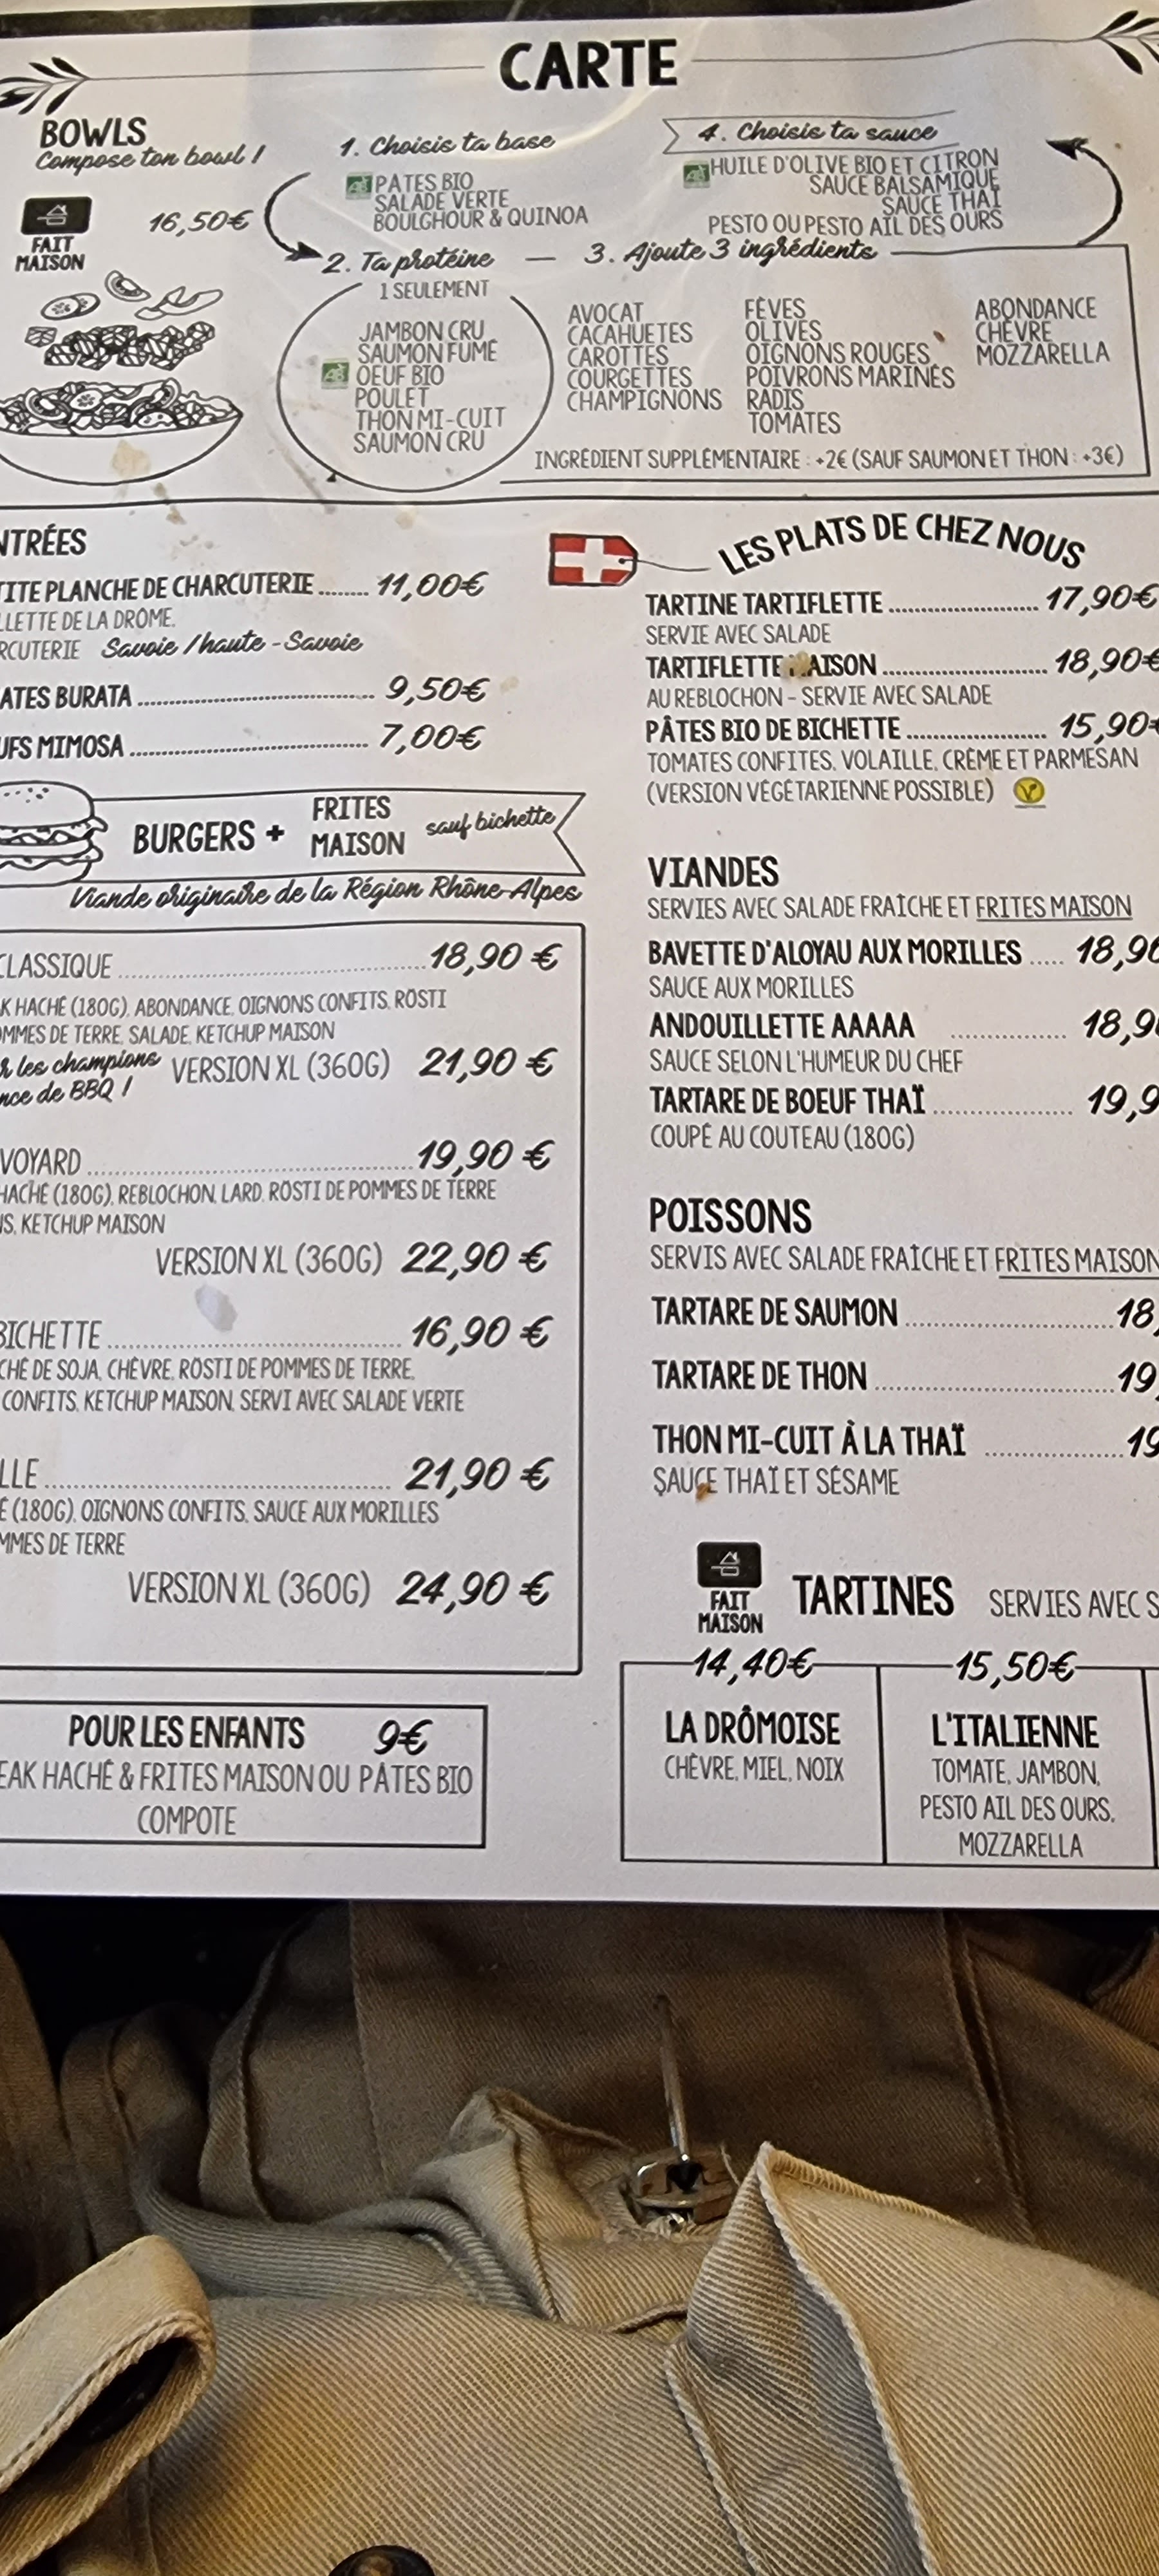 CARTE
BOWLS
Compose ton bowl !
FAIT
MAISON
16,50€
1. Choisis ta base
PATES BIO
SALADE VERTE
BOULGHOUR & QUINOA
2. Ta protéine
1 SEULEMENT
JAMBON CRU
SAUMON FUMÉ
OEUF BIO
POULET
THON MI-CUIT
SAUMON CRU
3. Ajoute 3 ingrédients
AVOCAT
CACAHUETES
CAROTTES
COURGETTES
CHAMPIGNONS
FÈVES
OLIVES
OIGNONS ROUGES
POIVRONS MARINÉS
RADIS
TOMATES
ABONDANCE
CHÈVRE
MOZZARELLA
INGRÉDIENT SUPPLÉMENTAIRE : +2€ (SAUF SAUMON ET THON : +3€)
4. Choisis ta sauce
HUILE D'OLIVE BIO ET CITRON
SAUCE BALSAMIQUE
SAUCE THAÏ
PESTO OU PESTO AIL DES OURS
NTRÉES
TITE PLANCHE DE CHARCUTERIE ........ 11,00€
LLETTE DE LA DRÔME.
RCUTERIE Savoie / haute - Savoie
ATES BURATA ........ 9,50€
UFS MIMOSA ........ 7,00€
BURGERS + FRITES MAISON sauf bichette
Viande originaire de la Région Rhône-Alpes
CLASSIQUE ........ 18,90 €
K HACHÉ (180G), ABONDANCE, OIGNONS CONFITS, RÖSTI
OMMES DE TERRE, SALADE, KETCHUP MAISON
r les champions
nce de BBQ !
VERSION XL (360G) 21,90 €
VOYARD ........ 19,90 €
HACHÉ (180G), REBLOCHON, LARD, RÖSTI DE POMMES DE TERRE
NS, KETCHUP MAISON
VERSION XL (360G) 22,90 €
BICHETTE ........ 16,90 €
CHÉ DE SOJA, CHÈVRE, RÖSTI DE POMMES DE TERRE,
CONFITS, KETCHUP MAISON, SERVI AVEC SALADE VERTE
LLE ........ 21,90 €
É (180G), OIGNONS CONFITS, SAUCE AUX MORILLES
MMES DE TERRE
VERSION XL (360G) 24,90 €
POUR LES ENFANTS 9€
EAK HACHÉ & FRITES MAISON OU PÂTES BIO
COMPOTE
LES PLATS DE CHEZ NOUS
TARTINE TARTIFLETTE ........ 17,90€
SERVIE AVEC SALADE
TARTIFLETTE MAISON ........ 18,90€
AU REBLOCHON - SERVIE AVEC SALADE
PÂTES BIO DE BICHETTE ........ 15,90€
TOMATES CONFITES, VOLAILLE, CRÈME ET PARMESAN
(VERSION VÉGÉTARIENNE POSSIBLE)
VIANDES
SERVIES AVEC SALADE FRAÎCHE ET FRITES MAISON
BAVETTE D'ALOYAU AUX MORILLES ..... 18,90
SAUCE AUX MORILLES
ANDOUILLETTE AAAAA ........ 18,9
SAUCE SELON L'HUMEUR DU CHEF
TARTARE DE BOEUF THAÏ ........ 19,9
COUPÉ AU COUTEAU (180G)
POISSONS
SERVIS AVEC SALADE FRAÎCHE ET FRITES MAISON
TARTARE DE SAUMON ........ 18,
TARTARE DE THON ........ 19,
THON MI-CUIT À LA THAÏ ........ 19
SAUCE THAÏ ET SÉSAME
FAIT
MAISON
TARTINES SERVIES AVEC S
14,40€
LA DRÔMOISE
CHÈVRE, MIEL, NOIX
15,50€
L'ITALIENNE
TOMATE, JAMBON,
PESTO AIL DES OURS,
MOZZARELLA